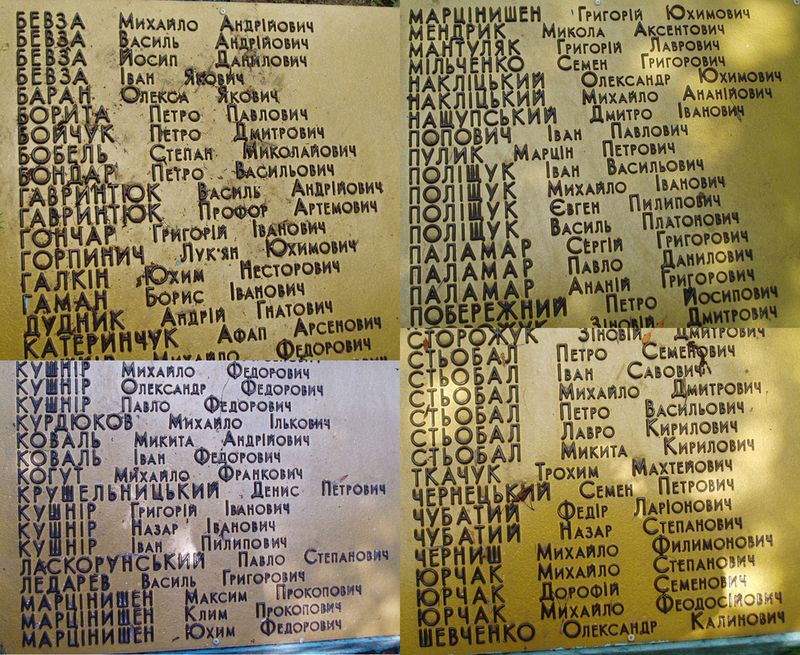 БЕВЗА Михайло Андрійович
БЕВЗА Василь Андрійович
БЕВЗА Йосип Данилович
БЕВЗА Іван Якович
БАРАН Олекса Якович
БОРИТА Петро Павлович
БОЙЧУК Петро Дмитрович
БОБЕЛЬ Степан Миколайович
БОНДАР Петро Васильович
ГАВРИНТЮК Василь Андрійович
ГАВРИНТЮК Профор Артемович
ГОНЧАР Григорій Іванович
ГОРПИНИЧ Лук'ян Юхимович
ГАЛКІН Юхим Несторович
ГАМАН Борис Іванович
ДУДНИК Андрій Гнатович
КАТЕРИНЧУК Афап Арсенович
Михайло Федорович
КУШНІР Михайло Федорович
КУШНІР Олександр Федорович
КУШНІР Павло Федорович
КУРДЮКОВ Михайло Ількович
КОВАЛЬ Микита Андрійович
КОВАЛЬ Іван Федорович
КОГУТ Михайло Франкович
КРУШЕЛЬНИЦЬКИЙ Денис Петрович
КУШНІР Григорій Іванович
КУШНІР Назар Іванович
КУШНІР Іван Пилипович
ЛАСКОРУНСЬКИЙ Павло Степанович
ЛЕДАРЕВ Василь Григорович
МАРЦІНИШЕН Максим Прокопович
МАРЦІНИШЕН Клим Прокопович
МАРЦІНИШЕН Юхим Федорович
МАРЦІНИШЕН Григорій Юхимович
МЕНДРИК Микола Аксентович
МАНТУЛЯК Григорій Лаврович
МІЛЬЧЕНКО Семен Григорович
НАКЛІЦЬКИЙ Олександр Юхимович
НАКЛІЦЬКИЙ Михайло Ананійович
НАЩУПСЬКИЙ Дмитро Іванович
ПОПОВИЧ Іван Павлович
ПУЛИК Марцін Петрович
ПОЛІЩУК Іван Васильович
ПОЛІЩУК Михайло Іванович
ПОЛІЩУК Євген Пилипович
ПОЛІЩУК Василь Платонович
ПАЛАМАР Сергій Григорович
ПАЛАМАР Павло Данилович
ПАЛАМАР Ананій Григорович
ПОБЕРЕЖНИЙ Петро Йосипович
Зіновій Дмитрович
СТОРОЖУК Зіновій Дмитрович
СТЬОБАЛ Петро Семенович
СТЬОБАЛ Іван Савович
СТЬОБАЛ Михайло Дмитрович
СТЬОБАЛ Петро Васильович
СТЬОБАЛ Лавро Кирилович
СТЬОБАЛ Микита Кирилович
ТКАЧУК Трохим Махтейович
ЧЕРНЕЦЬКИЙ Семен Петрович
ЧУБАТИЙ Федір Ларіонович
ЧУБАТИЙ Назар Степанович
ЧЕРНИШ Михайло Филимонович
ЮРЧАК Михайло Степанович
ЮРЧАК Дорофій Семенович
ЮРЧАК Михайло Феодосійович
ШЕВЧЕНКО Олександр Калинович